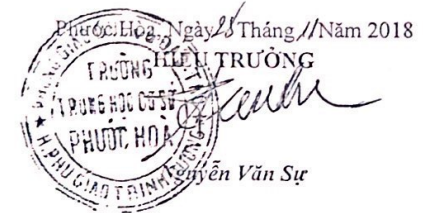 Phước Hòa, Ngày 25 Tháng 11 Năm 2018
HIỆU TRƯỞNG
TRƯỜNG
TRUNG HỌC CƠ SỞ
PHƯỚC HOÀ
H.PHÚ GIÁO T.BÌNH DƯƠNG
Nguyễn Văn Sự